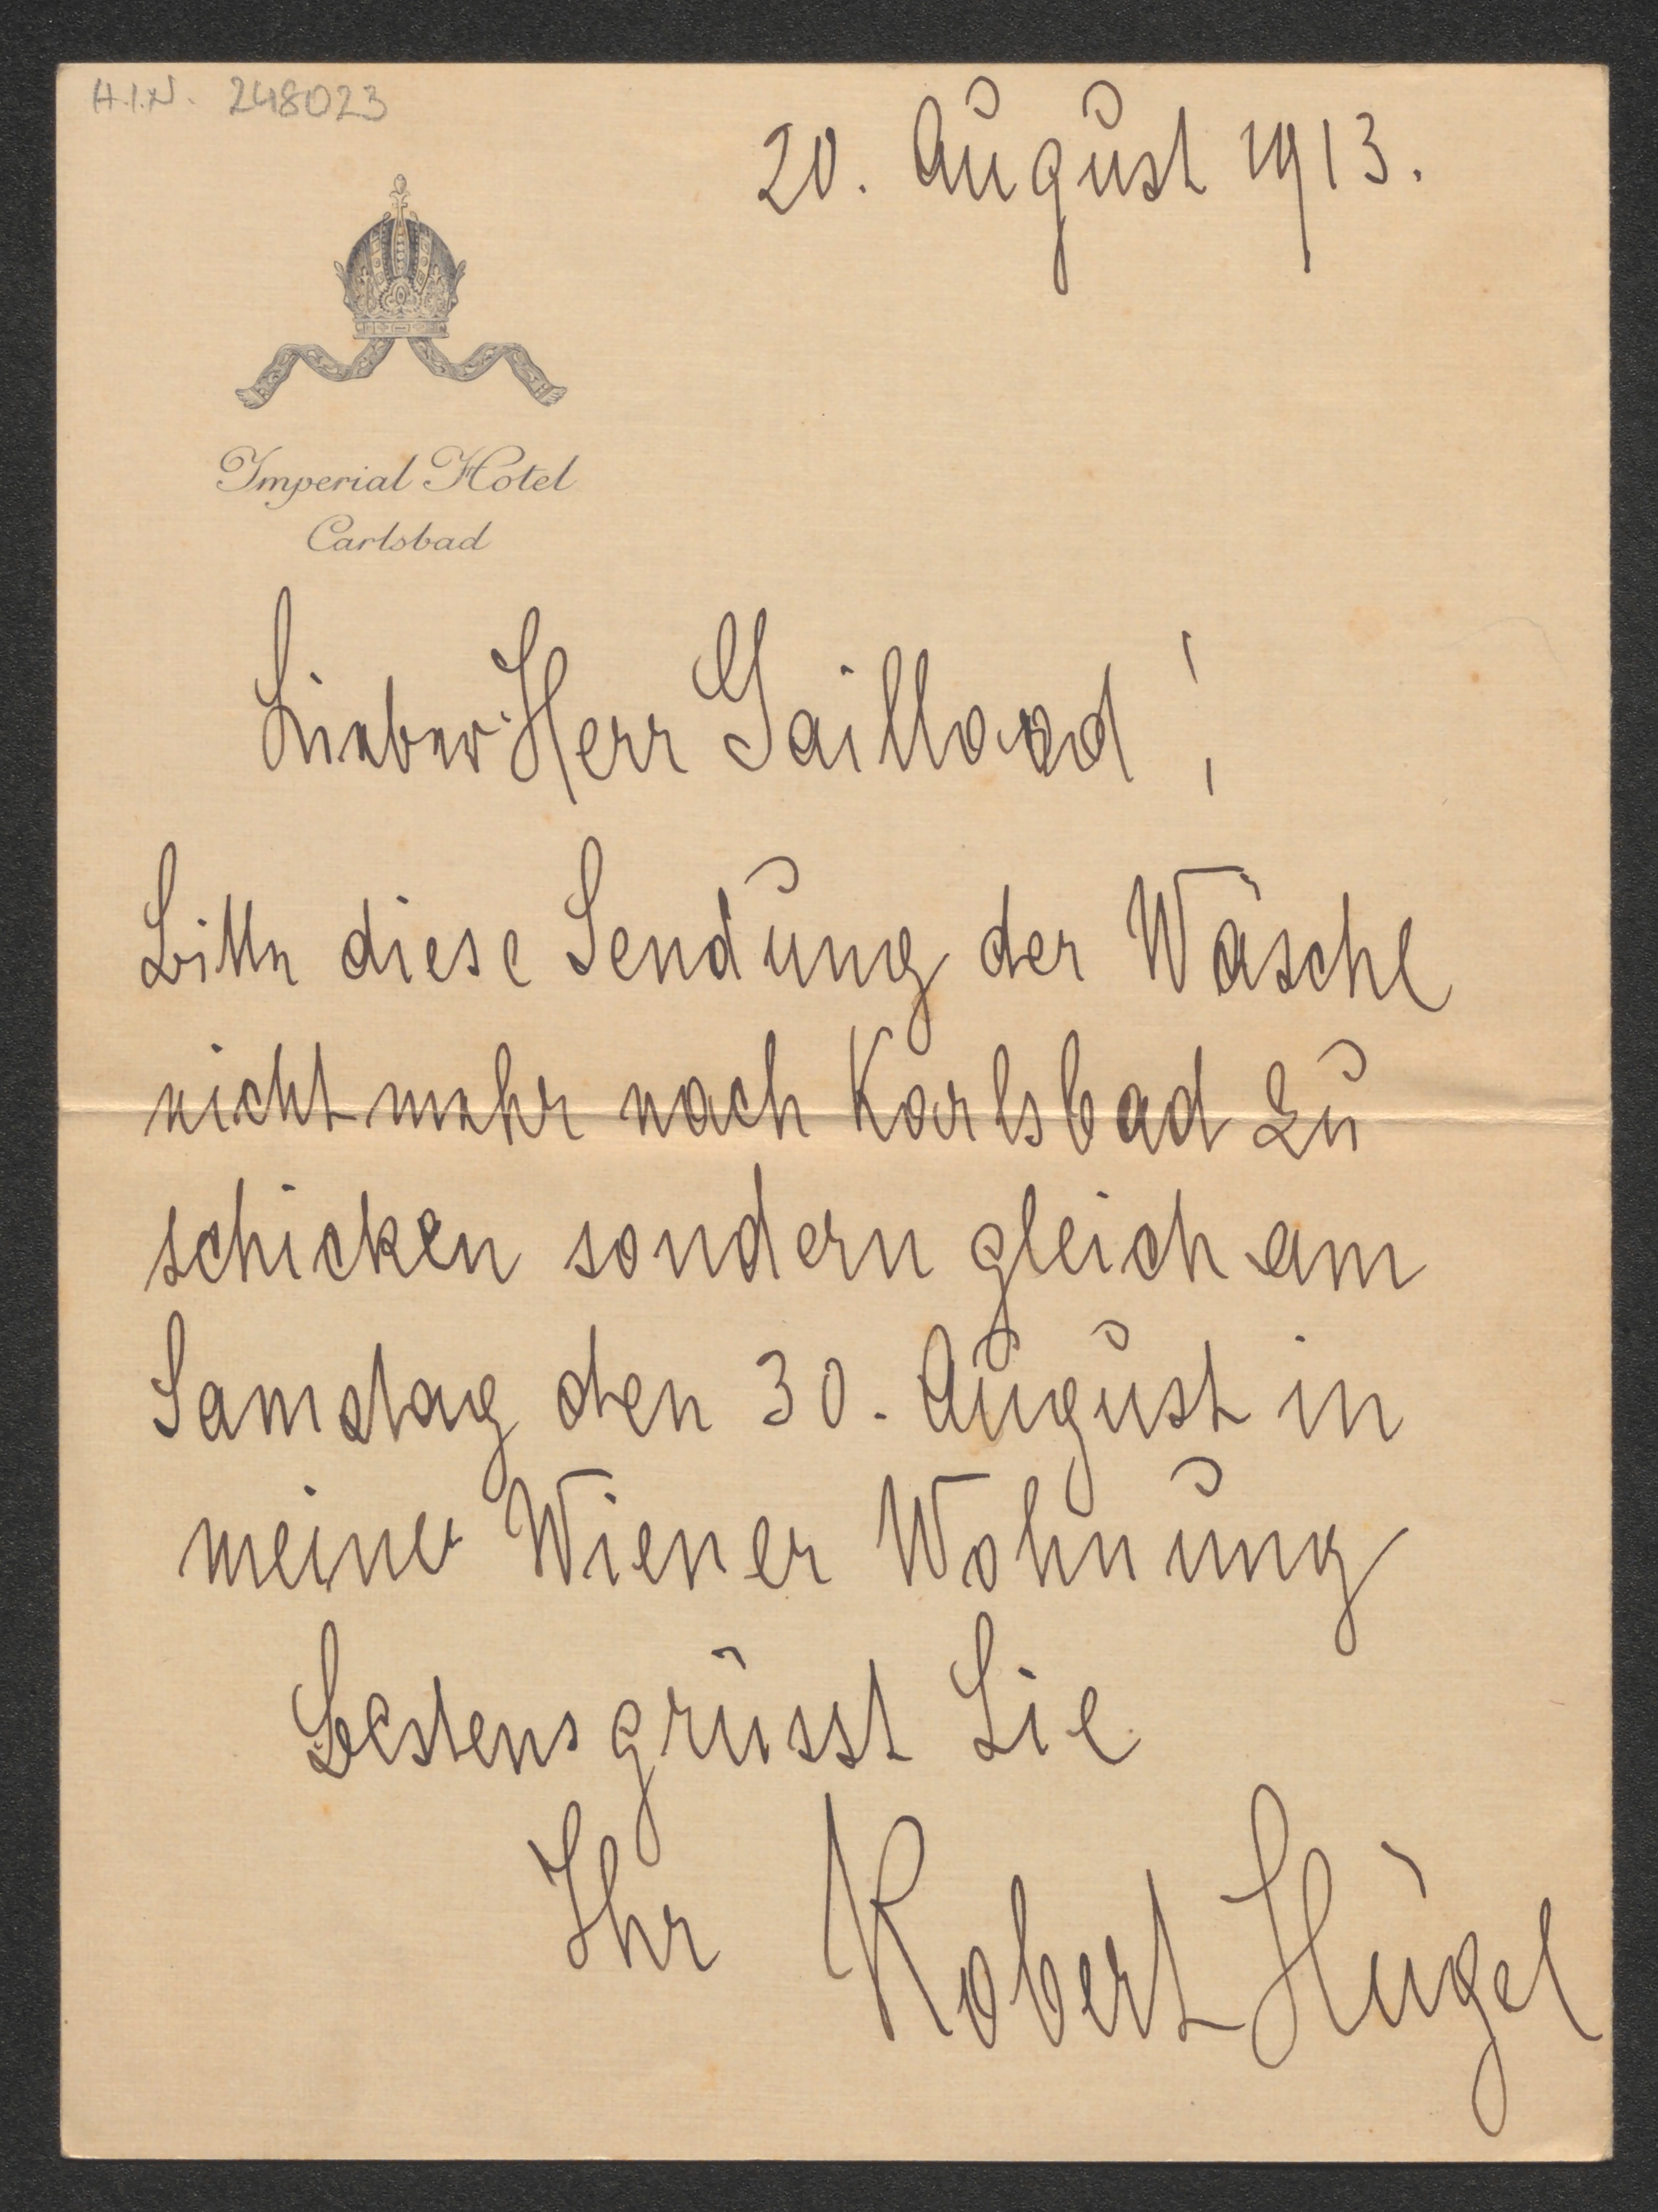 H.I.N. 248023
20. August 1913.
Imperial Hotel
Carlsbad
Lieber Herr Gaillard!
Bitte diese Sendung der Wäsche
nicht mehr nach Karlsbad zu
schicken sondern gleich am
Samstag den 30. August in
meiner Wiener Wohnung
Bestens grüsst Sie
Ihr Robert Hügel